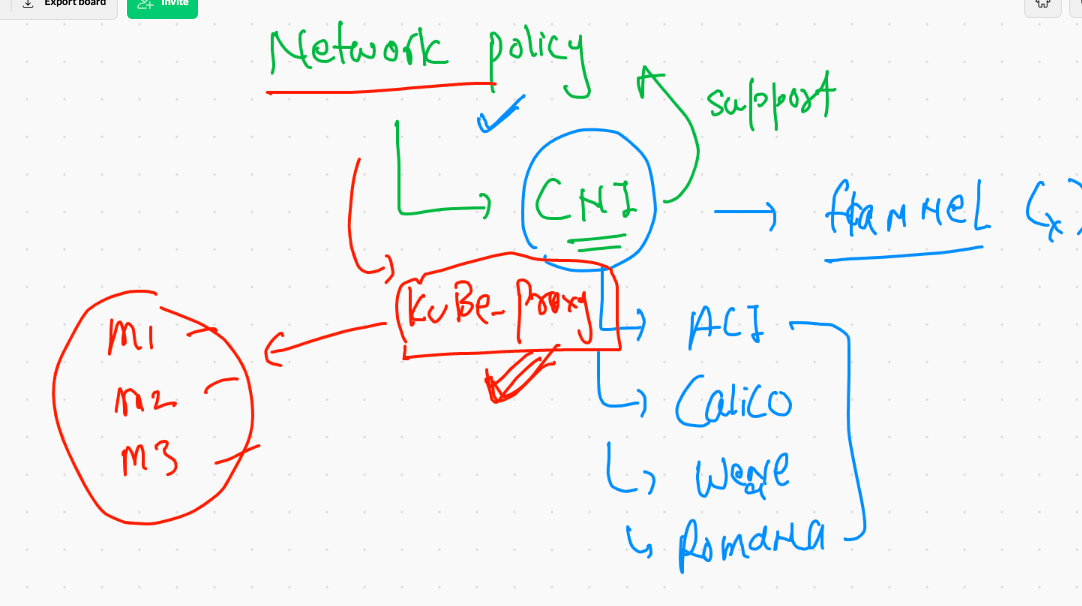 Export board
Invite
Network policy
support
CNI
flannel (x)
Kube-Proxy
ACI
M1
Calico
M2
Weave
M3
Romana